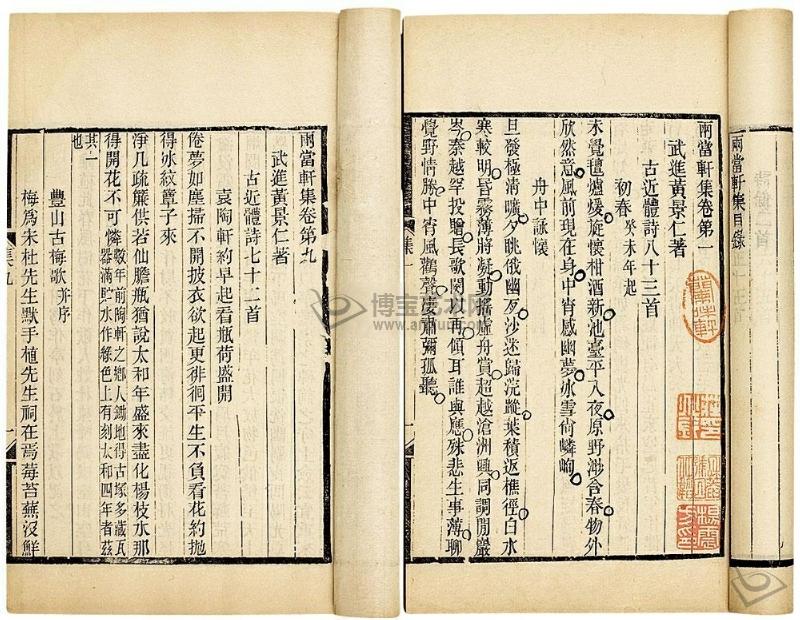 兩當軒集目錄
兩當軒集卷第一
武進黃景仁著
古近體詩八十三首
初春 癸未年起
未覺氊爐煖旋懷柑酒新池臺平入夜原野渺含春物外
欣然意風前現在身中宵感幽夢冰雪尙嶙峋
舟中詠懷
旦發極清曠夕眺俄幽歹沙迷歸浣蹤葉積返樵徑白水
寒較明昏霧薄將凝動搖虛舟賞超越滄洲興同調閒巖
岑泰越罕投贈長歌闃再傾耳誰與應殊悲生事薄聊
覺野情勝中宵風鸛聲度肅彌孤聽
集一
一
兩當軒集卷第九
武進黃景仁著
古近體詩七十二首
袁陶軒約早起看瓶荷盛開
倦夢如塵掃不開披衣欲起更徘徊平生不負看花約拋
得冰紋簟子來
淨几疏簾供若仙膽瓶猶說太和年盛來盡化楊枝水那
得開花不可憐 數年前陶軒之鄉人鋤地得古塚多藏瓦
器滿貯水作綠色上有刻太和四年者茲
其一
也
豐山古梅歌 并序
梅爲未杜先生默手植先生祠在焉莓苔蕪沒鮮
集九
一
博宝艺术网
www.artxun.com